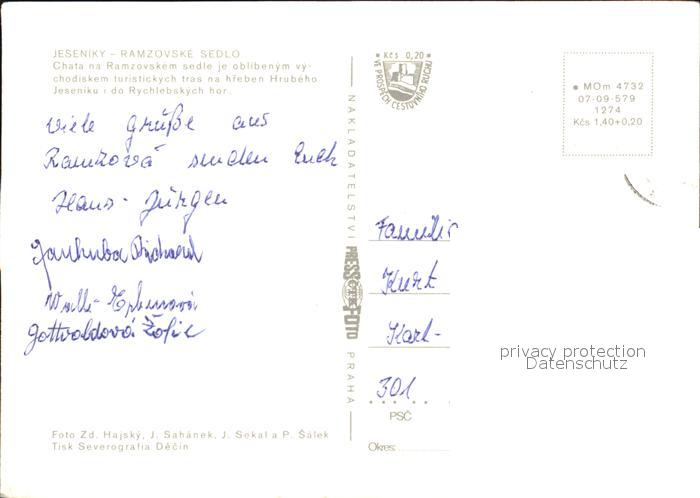 JESENÍKY – RAMZOVSKÉ SEDLO
Chata na Ramzovském sedle je oblíbeným vý-
chodiskem turistických tras na hřeben Hrubého
Jeseníku i do Rychlebských hor.
Viele Grüße aus
Ramzová senden Euch
Hans-Jürgen
Gottvaldová Žofie
Foto Zd. Hajský, J. Sahánek, J. Sekal a P. Šálek
Tisk Severografia Děčín
NAKLADATELSTVÍ
PRESSFOTO
PRAHA
Kčs 0,20
VE PROSPĚCH CESTOVNÍHO RUCHU
MOm 4732
07-09-579
1274
Kčs 1,40+0,20
Familie
Kurt
Karl-
301
PSČ
Okres:
privacy protection
Datenschutz